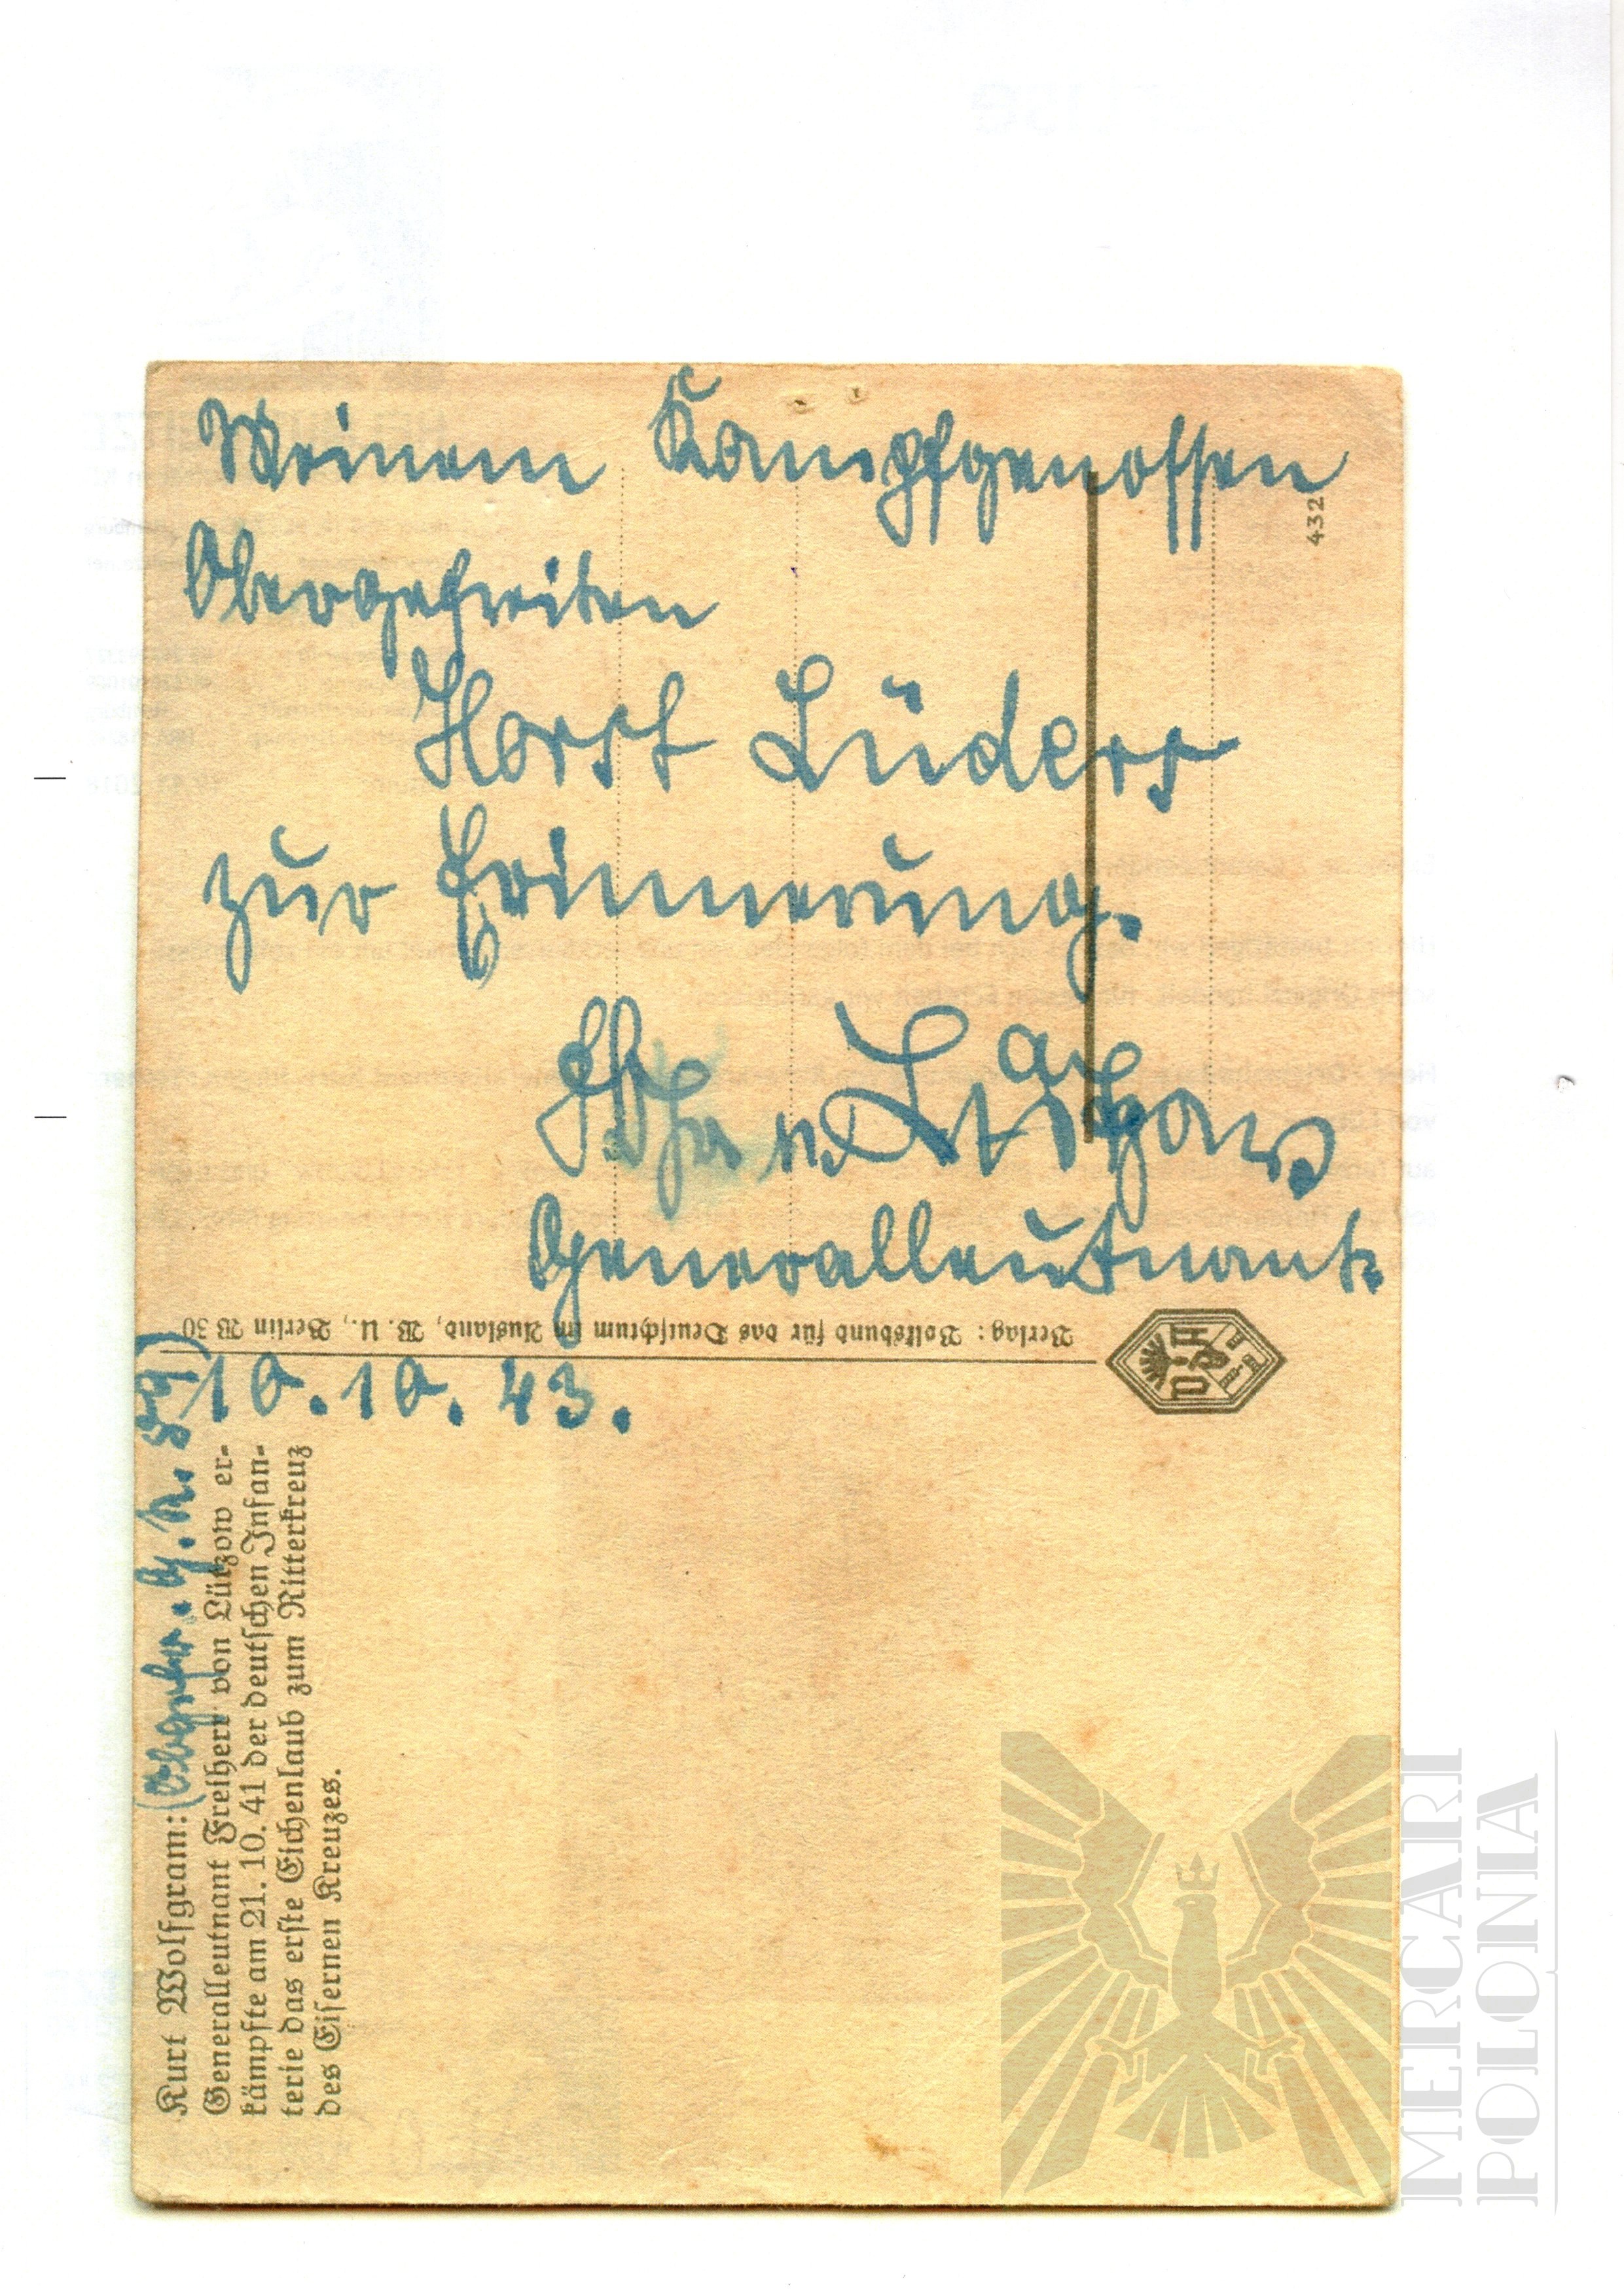 Meinem Kampfgenossen
Obergefreiten
Horst Lüders
zur Erinnerung.
Frhr v. Lützow
Generalleutnant.
10.10.43.
432
Verlag: Volksbund für das Deutschtum im Ausland, W. U., Berlin W 30
Kurt Wolfgram: (
Generalleutnant Freiherr von Lützow er-
kämpfte am 21. 10. 41 der deutschen Infan-
terie das erste Eichenlaub zum Ritterkreuz
des Eisernen Kreuzes.
MERCARI
POLONIA